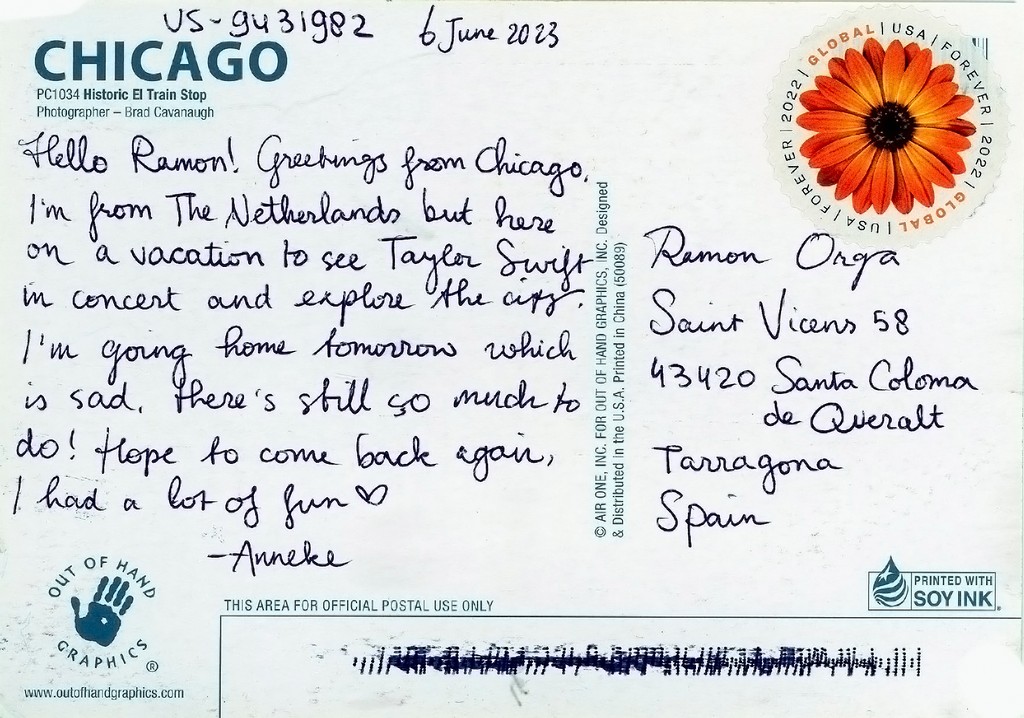 US-9431982
6 June 2023
CHICAGO
PC1034 Historic El Train Stop
Photographer – Brad Cavanaugh
Hello Ramon! Greetings from Chicago.
I'm from The Netherlands but here
on a vacation to see Taylor Swift
in concert and explore the city.
I'm going home tomorrow which
is sad. there's still so much to
do! Hope to come back again,
I had a lot of fun ♡
-Anneke
© AIR ONE, INC. FOR OUT OF HAND GRAPHICS, INC. Designed
& Distributed in the U.S.A. Printed in China (50089)
GLOBAL | USA | FOREVER | 2022 | GLOBAL | USA | FOREVER | 2022 |
Ramon Orga
Saint Vicens 58
43420 Santa Coloma
de Queralt
Tarragona
Spain
OUT OF HAND
GRAPHICS ®
www.outofhandgraphics.com
THIS AREA FOR OFFICIAL POSTAL USE ONLY
PRINTED WITH
SOY INK